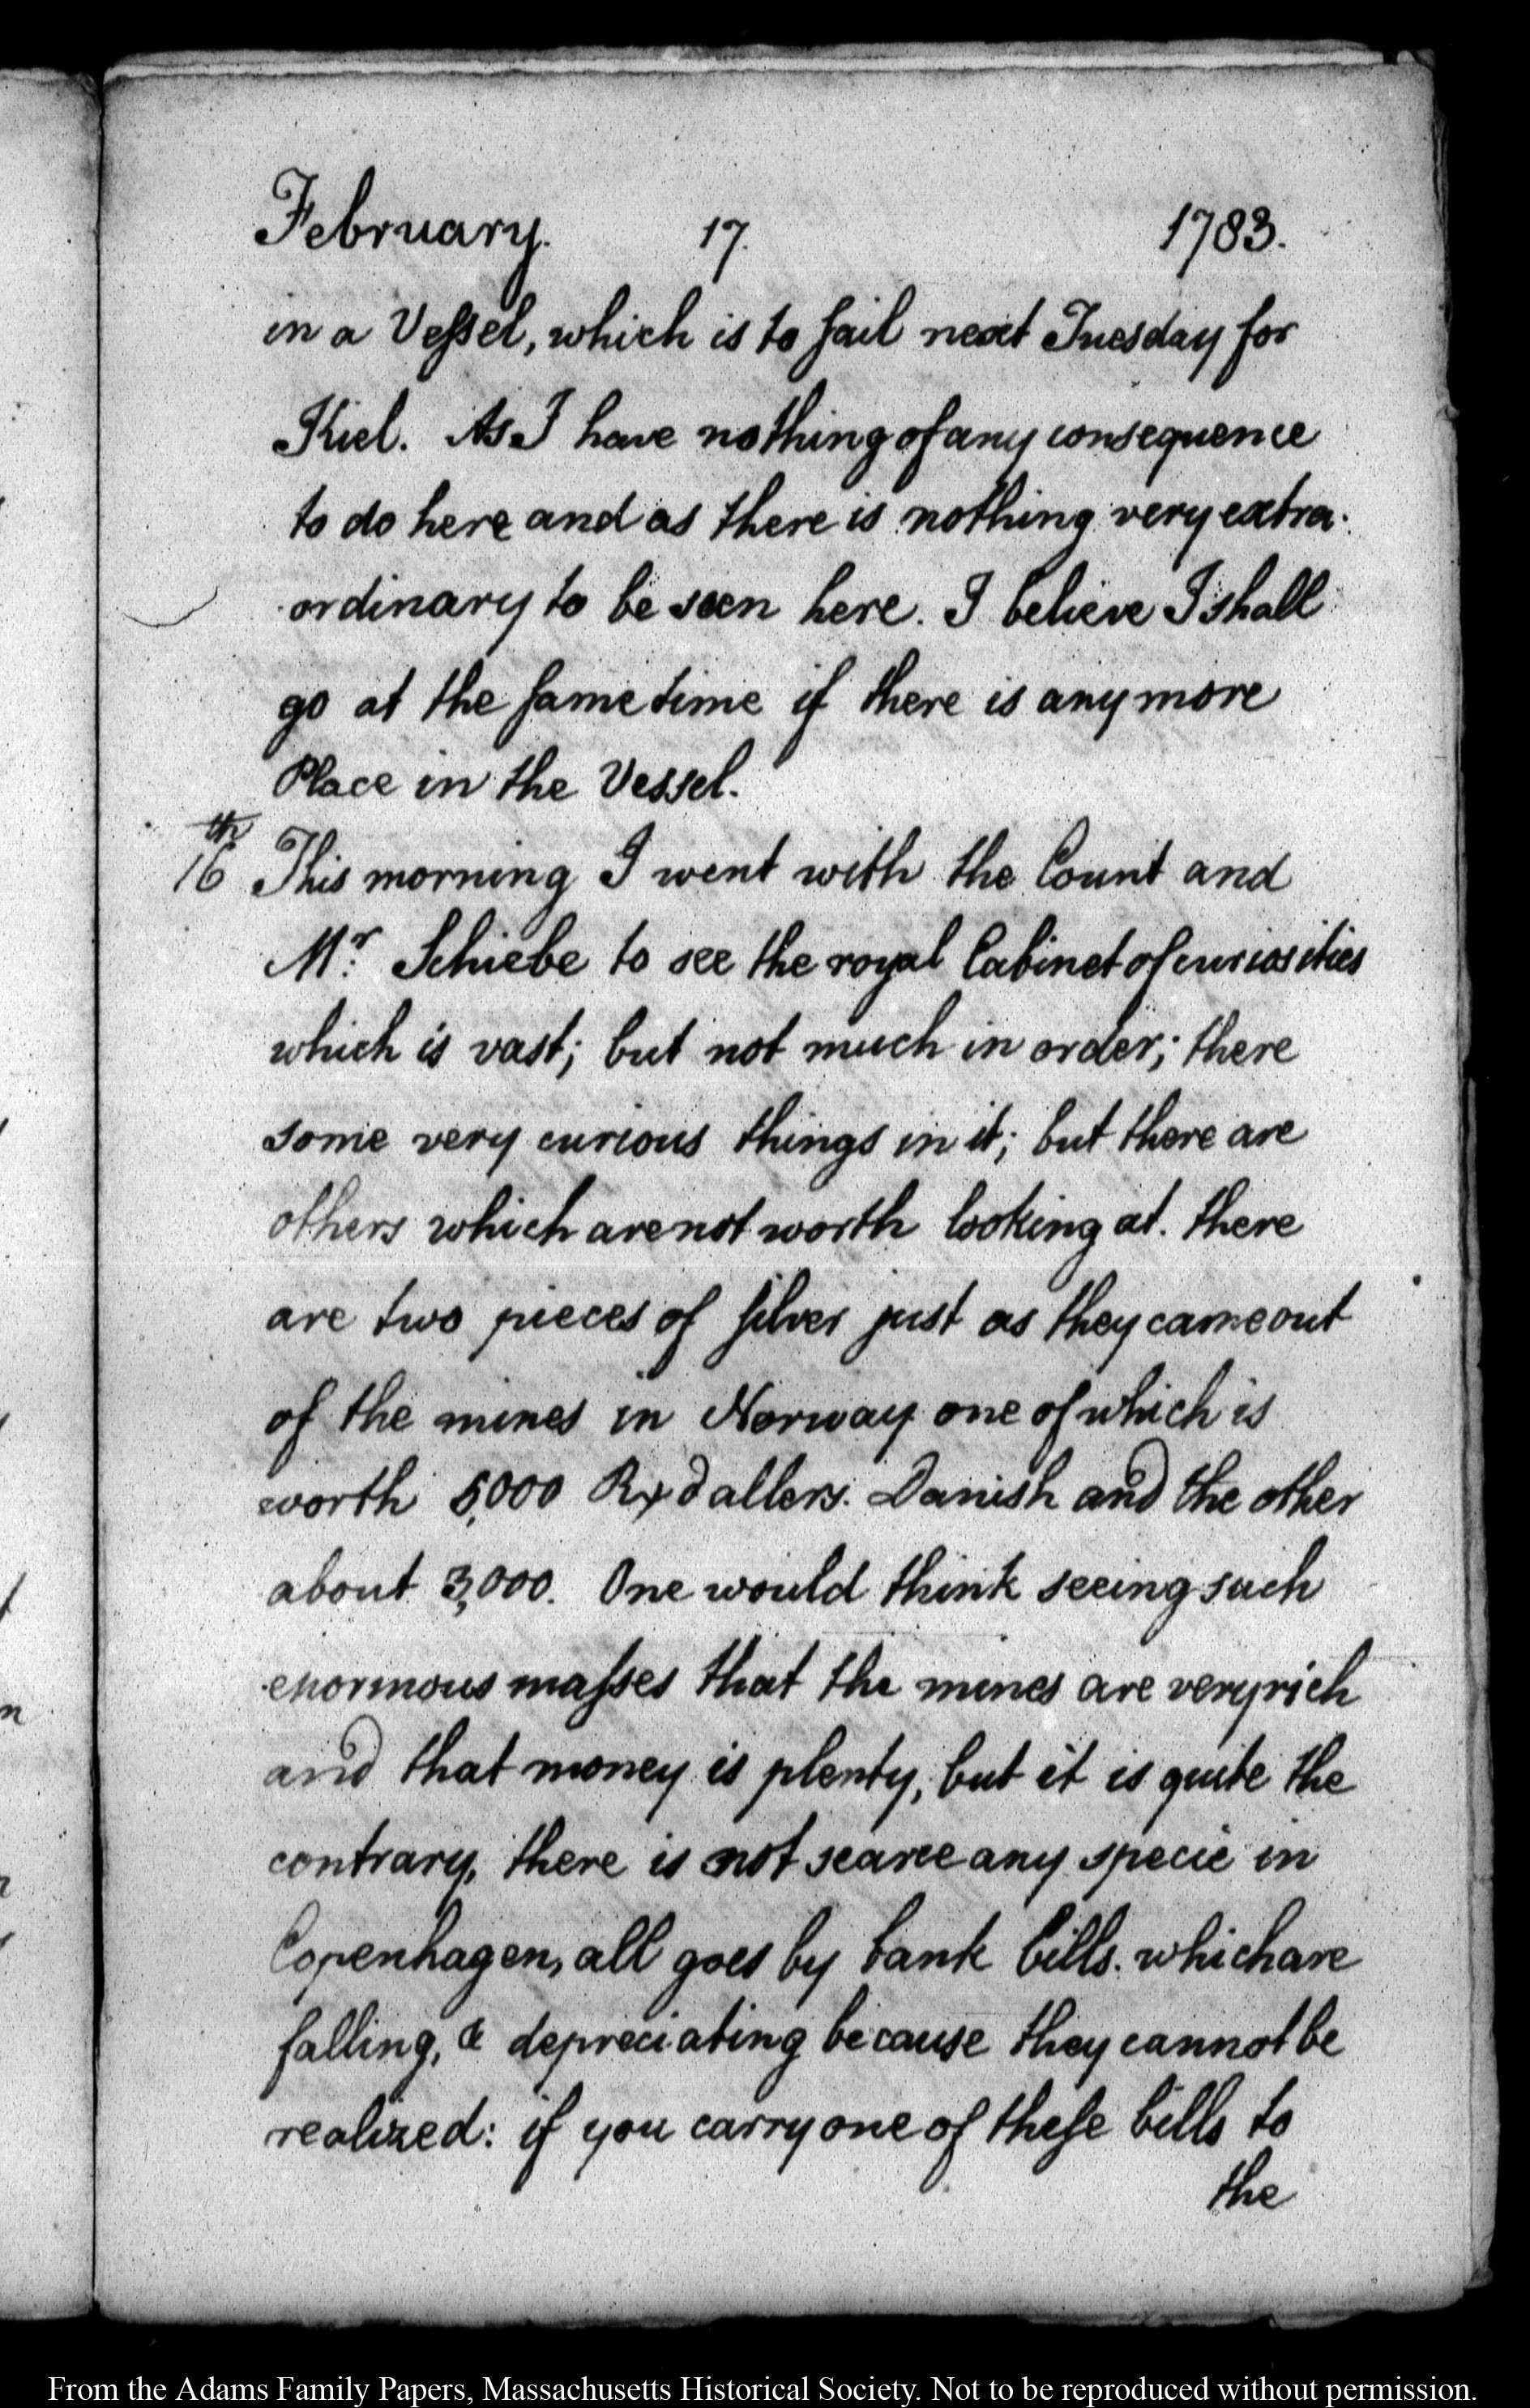 February. 17. 1783.
in a Veſsel, which is to ſail next Tuesday for
Kiel. As I have nothing of any consequence
to do here and as there is nothing very extra-
ordinary to be seen here. I believe I shall
go at the ſame time if there is any more
Place in the Vessel.
16th This morning I went with the Count and
Mr. Schiebe to see the royal Cabinet of curiosities
which is vast; but not much in order; there
some very curious things in it; but there are
others which are not worth looking at. there
are two pieces of ſilver just as they came out
of the mines in Norway one of which is
worth 5,000 Rxdallers. Danish and the other
about 3,000. One would think seeing such
enormous maſses that the mines are very rich
and that money is plenty, but it is quite the
contrary, there is not scarce any specie in
Copenhagen, all goes by bank bills. which are
falling, & depreciating because they cannot be
realized: if you carry one of theſe bills to
the
From the Adams Family Papers, Massachusetts Historical Society. Not to be reproduced without permission.